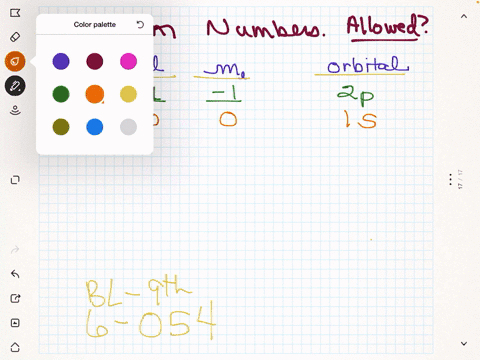 Color palette
Numbers. Allowed?
l m orbital
-1 2p
0 0 1s
BL-9th
6-054
17/17